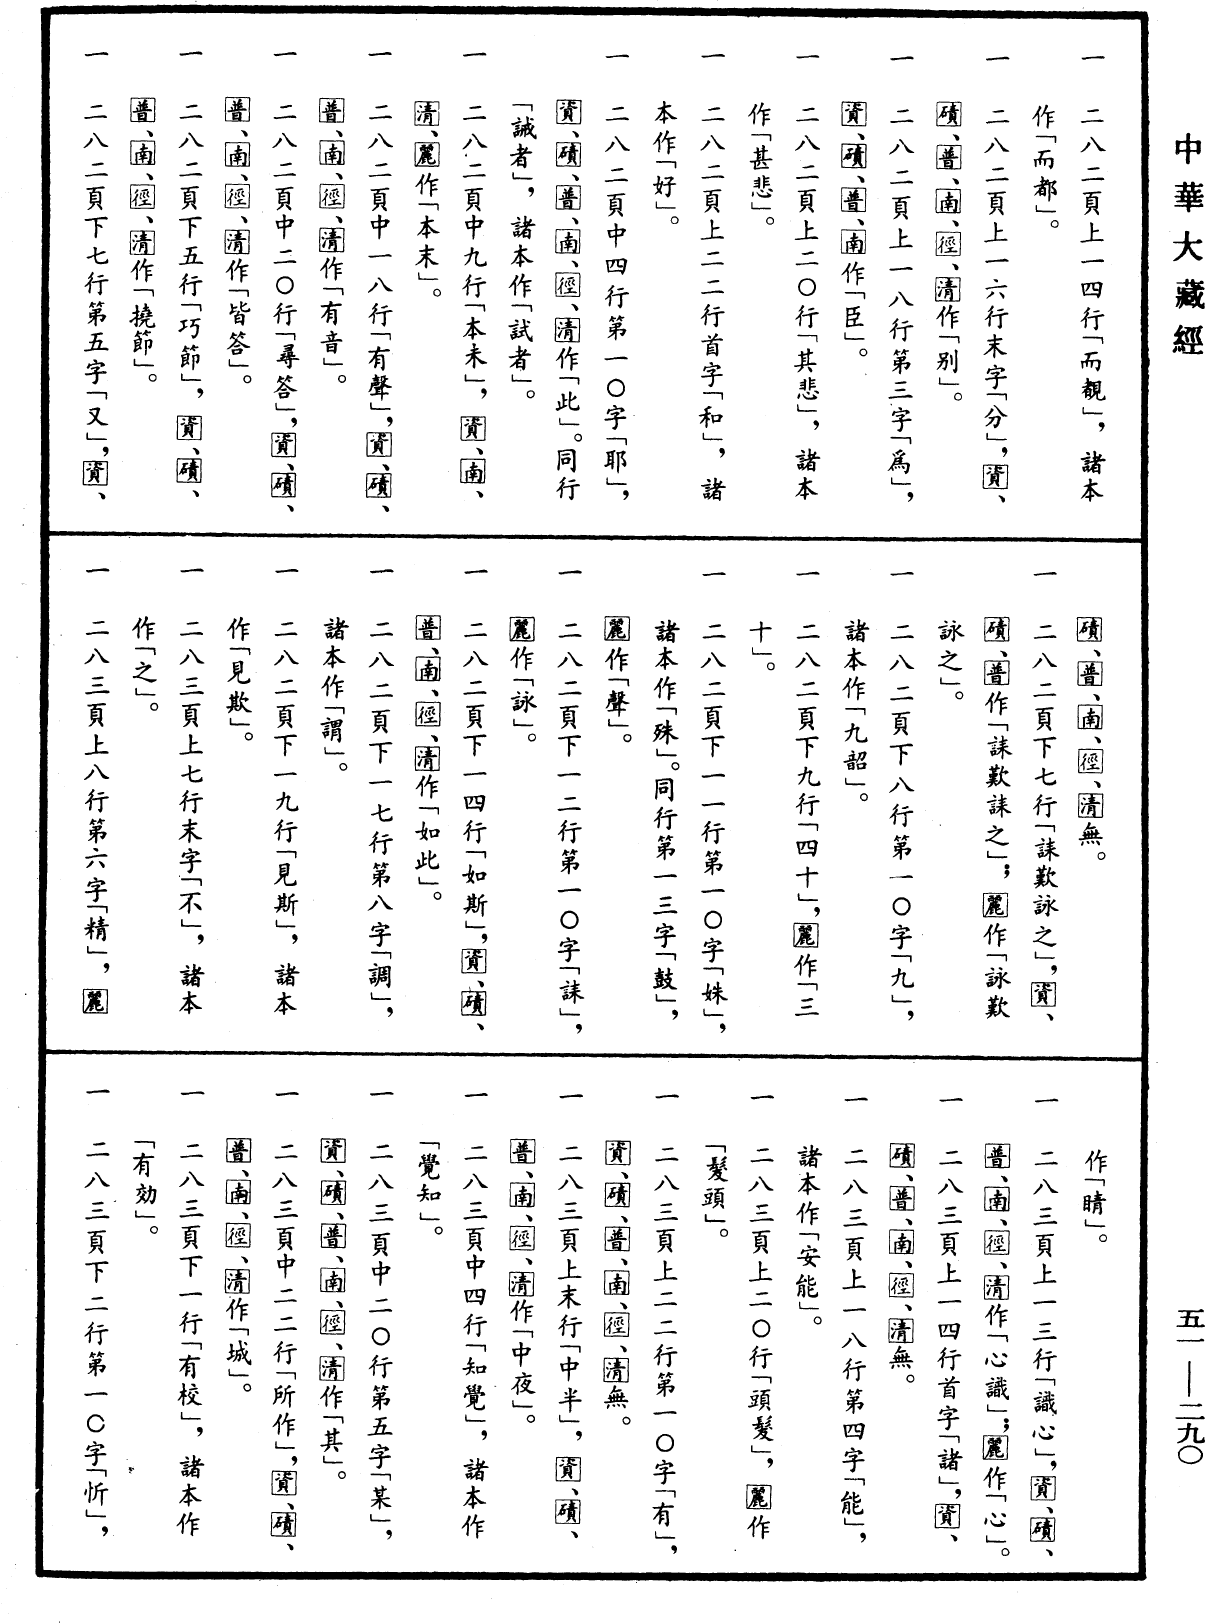 中華大藏經
一　二八二頁上一四行「而覩」，諸本
作「而都」。
一　二八二頁上一六行末字「分」，資、
磧、普、南、徑、清作「别」。
一　二八二頁上一八行第三字「爲」，
資、磧、普、南作「臣」。
一　二八二頁上二〇行「其悲」，諸本
作「甚悲」。
一　二八二頁上二二行首字「和」，諸
本作「好」。
一　二八二頁中四行第一〇字「耶」，
資、磧、普、南、徑、清作「此」。同行
「誠者」，諸本作「試者」。
一　二八二頁中九行「本未」，資、南、
清、麗作「本末」。
一　二八二頁中一八行「有聲」，資、磧、
普、南、徑、清作「有音」。
一　二八二頁中二〇行「尋答」，資、磧、
普、南、徑、清作「皆答」。
一　二八二頁下五行「巧節」，資、磧、
普、南、徑、清作「撓節」。
一　二八二頁下七行第五字「又」，資、
磧、普、南、徑、清無。
一　二八二頁下七行「誄歎詠之」，資、
磧、普作「誄歎誄之」；麗作「詠歎
詠之」。
一　二八二頁下八行第一〇字「九」，
諸本作「九韶」。
一　二八二頁下九行「四十」，麗作「三
十」。
一　二八二頁下一一行第一〇字「姝」，
諸本作「殊」。同行第一三字「鼓」，
麗作「聲」。
一　二八二頁下一二行第一〇字「誄」，
麗作「詠」。
一　二八二頁下一四行「如斯」，資、磧、
普、南、徑、清作「如此」。
一　二八二頁下一七行第八字「調」，
諸本作「謂」。
一　二八二頁下一九行「見斯」，諸本
作「見欺」。
一　二八三頁上七行末字「不」，諸本
作「之」。
一　二八三頁上八行第六字「精」，麗
作「睛」。
一　二八三頁上一三行「識心」，資、磧、
普、南、徑、清作「心識」；麗作「心」。
一　二八三頁上一四行首字「諸」，資、
磧、普、南、徑、清無。
一　二八三頁上一八行第四字「能」，
諸本作「安能」。
一　二八三頁上二〇行「頭髮」，麗作
「髮頭」。
一　二八三頁上二二行第一〇字「有」，
資、磧、普、南、徑、清無。
一　二八三頁上末行「中半」，資、磧、
普、南、徑、清作「中夜」。
一　二八三頁中四行「知覺」，諸本作
「覺知」。
一　二八三頁中二〇行第五字「某」，
資、磧、普、南、徑、清作「其」。
一　二八三頁中二二行「所作」，資、磧、
普、南、徑、清作「城」。
一　二八三頁下一行「有校」，諸本作
「有効」。
一　二八三頁下二行第一〇字「忻」，
五一—二九〇